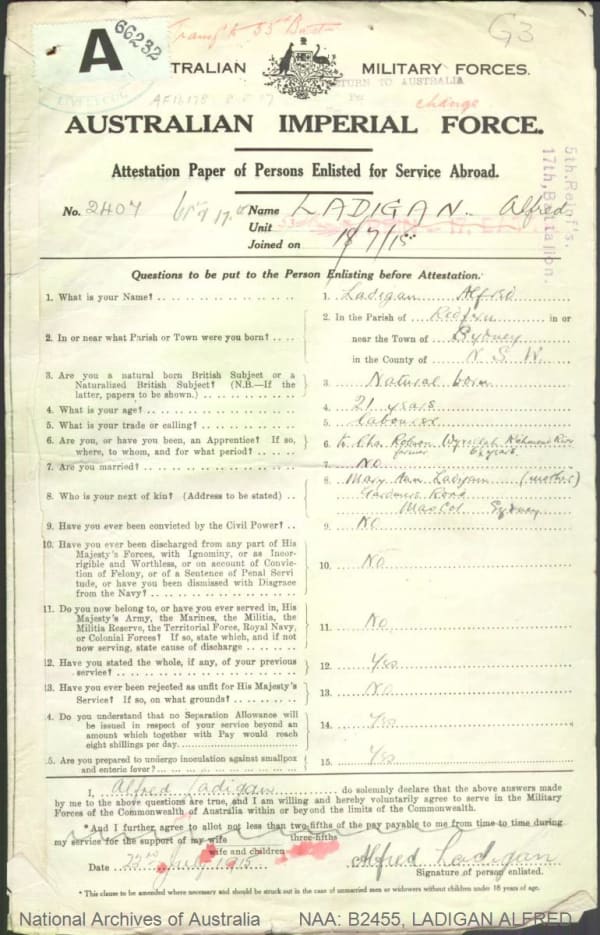 A 66232
Transf to 55th Battn
G3
TRALIAN MILITARY FORCES.
RETURN TO AUSTRALIA
change
AUSTRALIAN IMPERIAL FORCE.
Attestation Paper of Persons Enlisted for Service Abroad.
5th. Reinf's.
17th, Battalion.
No. 2407 Name LADIGAN. Alfred
Unit
Joined on 18/7/15
Questions to be put to the Person Enlisting before Attestation.
1. What is your Name? 1. Ladigan Alfred
2. In or near what Parish or Town were you born? 2. In the Parish of Redfern in or
near the Town of Sydney
in the County of N. S. W.
3. Are you a natural born British Subject or a
Naturalized British Subject? (N.B.—If the
latter, papers to be shown.) 3. Natural born
4. What is your age? 4. 21 years
5. What is your trade or calling? 5. labourer
6. Are you, or have you been, an Apprentice? If so,
where, to whom, and for what period? 6. to Chs. Robson Richmond River
farmer years
7. Are you married? 7. No
8. Who is your next of kin? (Address to be stated) 8. Mary Ann Ladigan (mother)
Gardiners Road
Mascot Sydney
9. Have you ever been convicted by the Civil Power? 9. No
10. Have you ever been discharged from any part of His
Majesty's Forces, with Ignominy, or as Incor-
rigible and Worthless, or on account of Convic-
tion of Felony, or of a Sentence of Penal Servi
tude, or have you been Dismissed with Disgrace
from the Navy? 10. No
11. Do you now belong to, or have you ever served in, His
Majesty's Army, the Marines, the Militia, the
Militia Reserve, the Territorial Force, Royal Navy,
or Colonial Forces? If so, state which, and if not
now serving, state cause of discharge 11. No
12. Have you stated the whole, if any, of your previous
service? 12. Yes
13. Have you ever been rejected as unfit for His Majesty's
Service? If so, on what grounds? 13. No
4. Do you understand that no Separation Allowance will
be issued in respect of your service beyond an
amount which together with Pay would reach
eight shillings per day 14. Yes
5. Are you prepared to undergo inoculation against smallpox
and enteric fever? 15. Yes
I, Alfred Ladigan do solemnly declare that the above answers made
by me to the above questions are true, and I am willing and hereby voluntarily agree to serve in the Military
Forces of the Commonwealth of Australia within or beyond the limits of the Commonwealth.
*And I further agree to allot not less than two-fifths of the pay payable to me from time to time during
three-fifths
my service for the support of my wife
wife and children
Date 22nd July 1915 Alfred Ladigan
Signature of person enlisted.
*This clause to be amended where necessary and should be struck out in the case of unmarried men or widowers without children under 18 years of age.
National Archives of Australia NAA: B2455, LADIGAN ALFRED